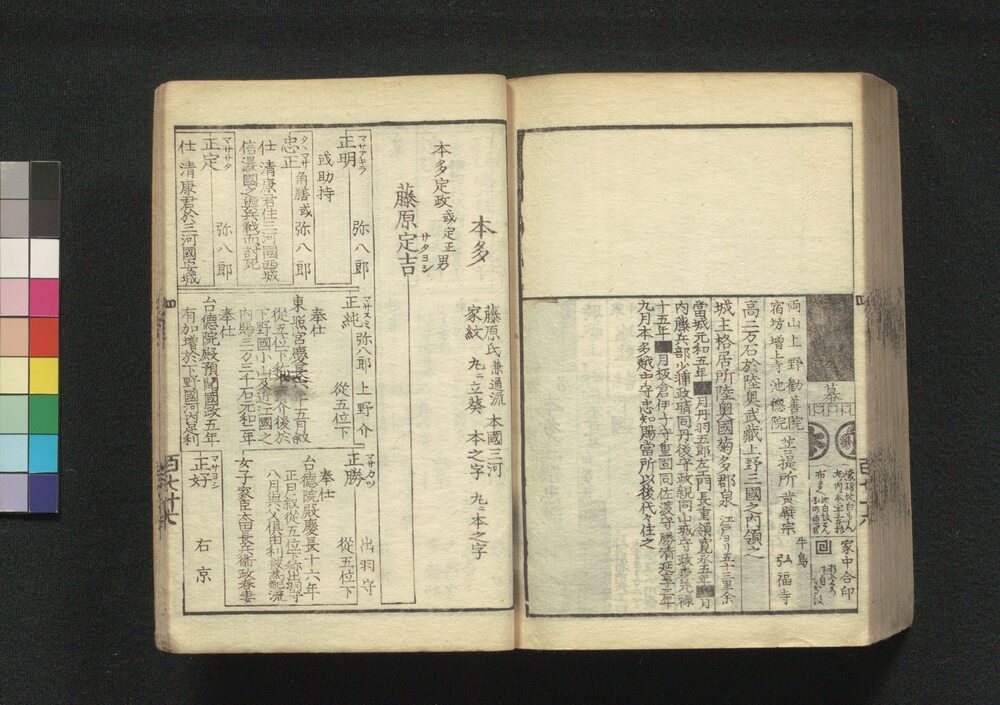 幕
家中合印
両山上野勧善院
宿坊増上寺池徳院
菩提所黄檗宗
牛島
弘福寺
高二万石於陸奥武蔵上野三國之内領之
城主格居所陸奥國菊多郡泉
江戸ヨリ五十三里余
當城元和五年
月丹羽五郎左エ門長重領寛永五年
月
内藤兵部少輔政晴同丹後守政親同山城守政森元禄
十五年
月板倉伊予守重同同佐渡守勝清延享三年
九月本多越中守忠如賜當所以後代々住之
百七十六
本多
藤原氏
兼通流
本國三河
家紋
丸ニ立葵
本之字
丸ニ本之字
本多定政或定正男
藤原定吉
サタヨシ
マサアキラ
正明
弥八郎
或助持
タヽマサ
忠正
角膳或
弥八郎
仕
清康君住三河國西城
信濃國之
兵戦而討死
マササタ
正定
弥八郎
仕
清康君於三河國
城
マサスミ
正純
弥八郎
上野介
從五位下
奉仕
東照宮慶長
年五月叙
從五位下称
介後於
下野國小山及近江國之
内賜三万三千石元和二年
奉仕
台徳院殿預聞國政五年
有加増於下野國河内足利
マサカツ
正勝
出羽守
從五位下
奉仕
台徳院殿慶長十六年
正月叙從五位下称出羽守
八月與父俱由利被為配流
女子家臣太田長兵衛政春妻
マサヨシ
正好
右京
百七十六